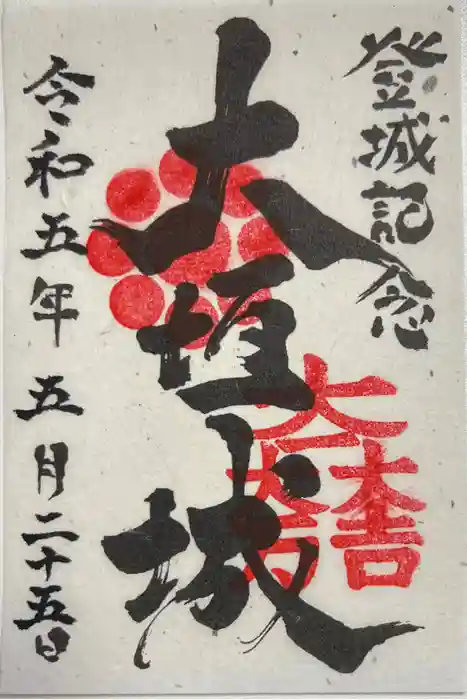 登城記念
大垣城
大一大万大吉
令和五年五月二十五日